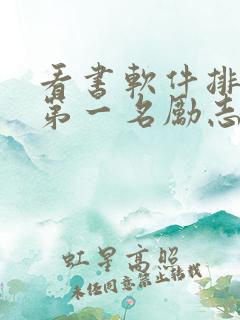 看書軟件排
第一名勵志
虹星高照
未经同意禁止转载